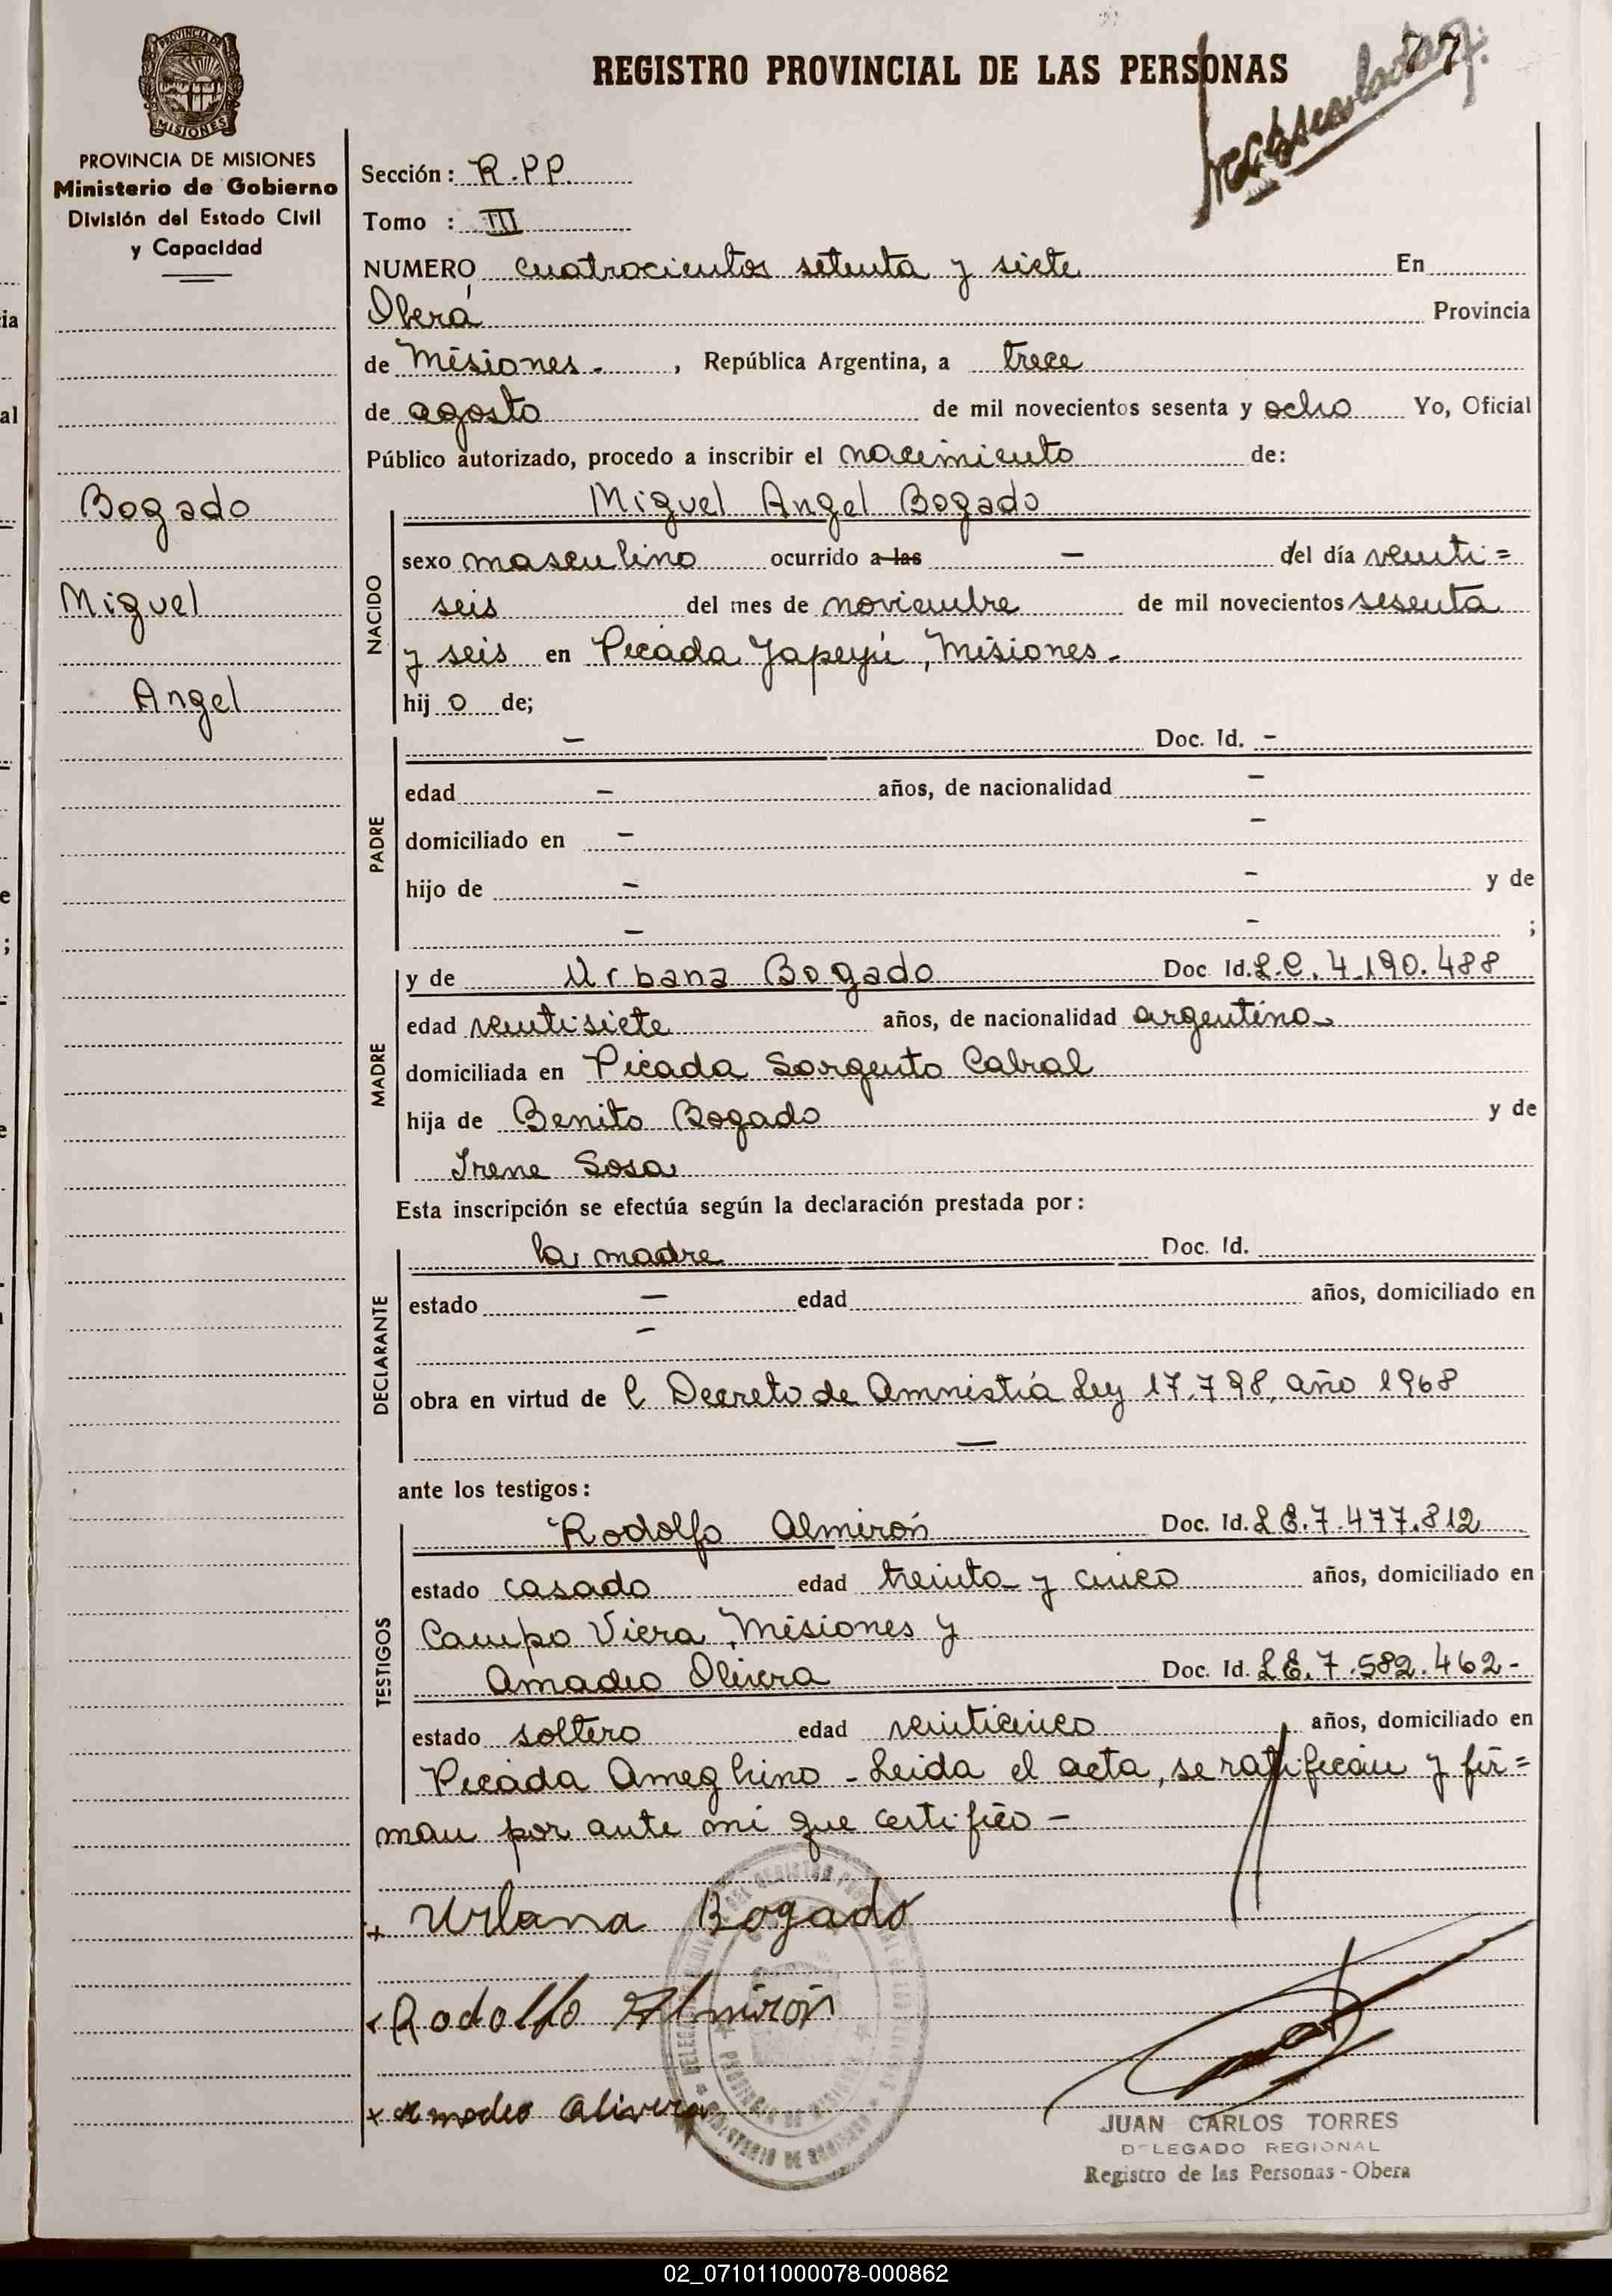 PROVINCIA DE MISIONES
REGISTRO PROVINCIAL DE LAS PERSONAS
77
PROVINCIA DE MISIONES
Ministerio de Gobierno
División del Estado Civil
y Capacidad
Sección: R.P.P.
Tomo : III
NUMERO cuatrocientos setenta y siete En
Oberá Provincia
de Misiones. , República Argentina, a trece
de agosto de mil novecientos sesenta y ocho Yo, Oficial
Público autorizado, procedo a inscribir el nacimiento de:
Bogado
Miguel
Angel
NACIDO
Miguel Angel Bogado
sexo masculino ocurrido a las — del día veinti=
seis del mes de noviembre de mil novecientos sesenta
y seis en Picada Yapeyú, Misiones.
hij o de;
PADRE
— Doc. Id. —
edad — años, de nacionalidad —
domiciliado en — —
hijo de — — y de
— — ;
MADRE
y de Urbana Bogado Doc Id. L.C. 4.190.488
edad veintisiete años, de nacionalidad argentina
domiciliada en Picada Sargento Cabral
hija de Benito Bogado y de
Irene Sosa
Esta inscripción se efectúa según la declaración prestada por:
DECLARANTE
la madre Doc. Id.
estado — edad años, domiciliado en
—
obra en virtud de l Decreto de Amnistía Ley 17.798, año 1968
—
ante los testigos:
TESTIGOS
Rodolfo Almirón Doc. Id. L E. 7.477.812
estado casado edad treinta y cinco años, domiciliado en
Campo Viera, Misiones y
Amadeo Olivera Doc. Id. L E. 7.582.462-
estado soltero edad veinticinco años, domiciliado en
Picada Ameghino - Leida el acta, se ratifican y fir=
man por ante mí que certifico -
x Urbana Bogado
x Rodolfo Almirón
x Amadeo Olivera
PROVINCIA DE MISIONES
JUAN CARLOS TORRES
DELEGADO REGIONAL
Registro de las Personas - Obera
02_071011000078-000862